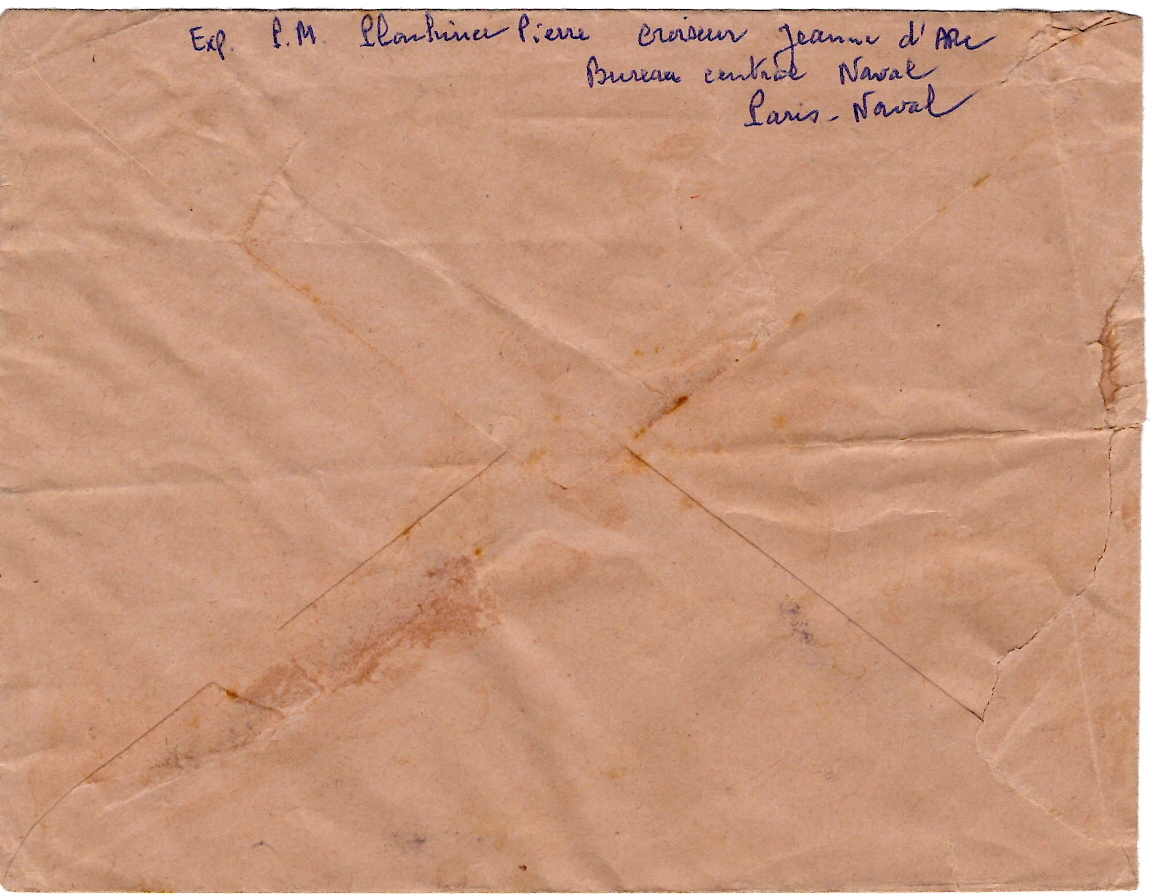 Exp. P.M. Pierre croiseur Jeanne d'Arc
Bureau central Naval
Paris - Naval